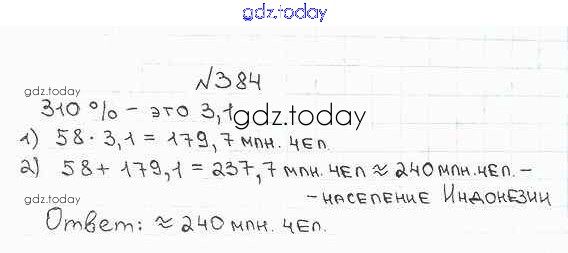 gdz.today
№384
gdz.today
310 % - это 3,1
gdz.today
1) 58 · 3,1 = 179,7 млн. чел.
2) 58 + 179,1 = 237,7 млн. чел ≈ 240 млн. чел. -
gdz.today
- население Индонезии
Ответ: ≈ 240 млн. чел.